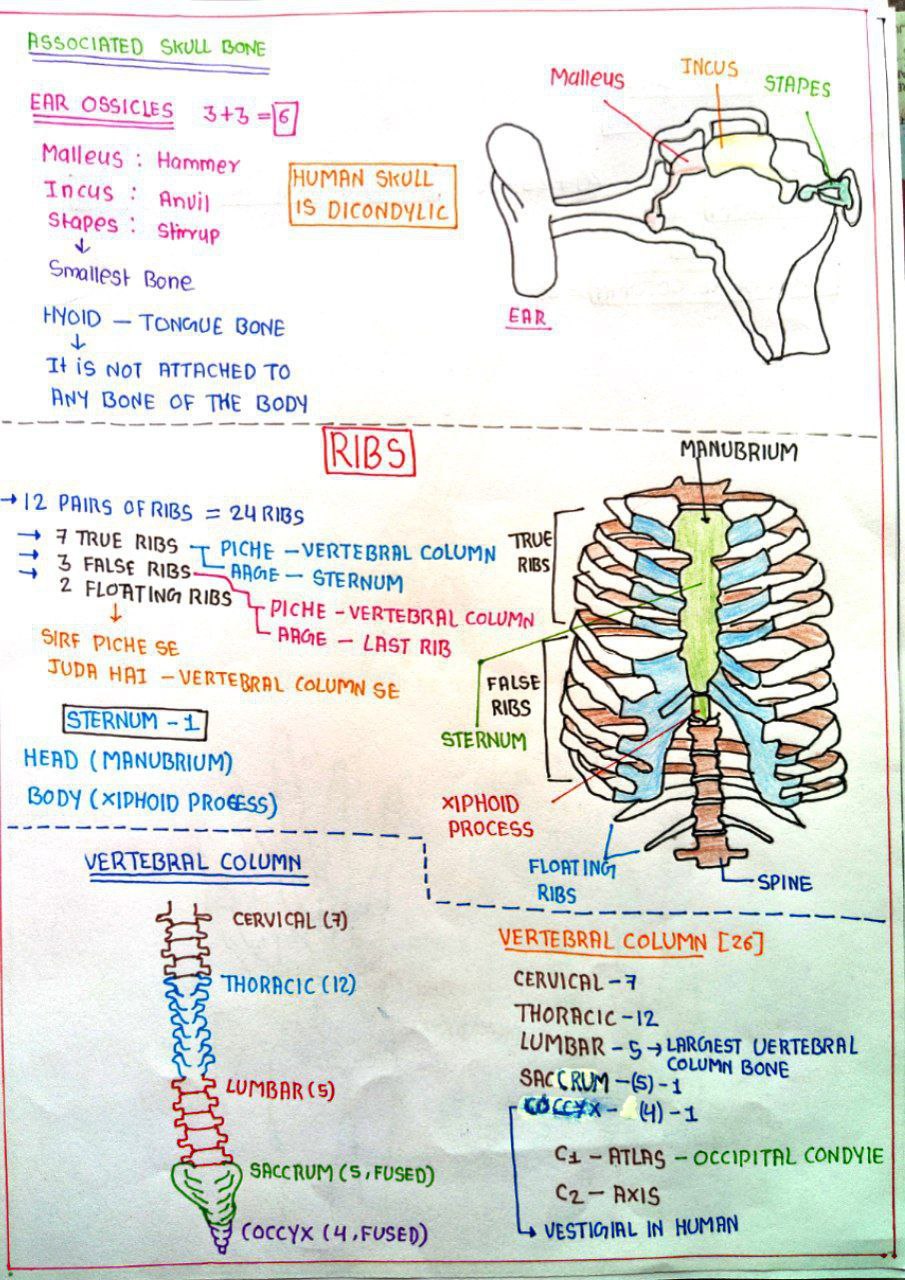 ASSOCIATED SKULL BONE
EAR OSSICLES 3+3 = 6
Malleus : Hammer
Incus : Anvil
Stapes : Stirrup
↓
Smallest Bone
HUMAN SKULL
IS DICONDYLIC
HYOID — TONGUE BONE
↓
It is NOT ATTACHED TO
ANY BONE OF THE BODY
Malleus
INCUS
STAPES
EAR
RIBS
→ 12 PAIRS OF RIBS = 24 RIBS
→ 7 TRUE RIBS
→ 3 FALSE RIBS
→ 2 FLOATING RIBS
PICHE - VERTEBRAL COLUMN
AAGE - STERNUM
PICHE - VERTEBRAL COLUMN
AAGE - LAST RIB
↓
SIRF PICHE SE
JUDA HAI - VERTEBRAL COLUMN SE
STERNUM - 1
HEAD (MANUBRIUM)
BODY (XIPHOID PROCESS)
MANUBRIUM
TRUE
RIBS
FALSE
RIBS
STERNUM
XIPHOID
PROCESS
FLOATING
RIBS
SPINE
VERTEBRAL COLUMN
CERVICAL (7)
THORACIC (12)
LUMBAR (5)
SACCRUM (5, FUSED)
COCCYX (4, FUSED)
VERTEBRAL COLUMN [26]
CERVICAL - 7
THORACIC - 12
LUMBAR - 5 → LARGEST VERTEBRAL
COLUMN BONE
SACCRUM - (5) - 1
COCCYX - (4) - 1
C1 - ATLAS - OCCIPITAL CONDYLE
C2 - AXIS
→ VESTIGIAL IN HUMAN